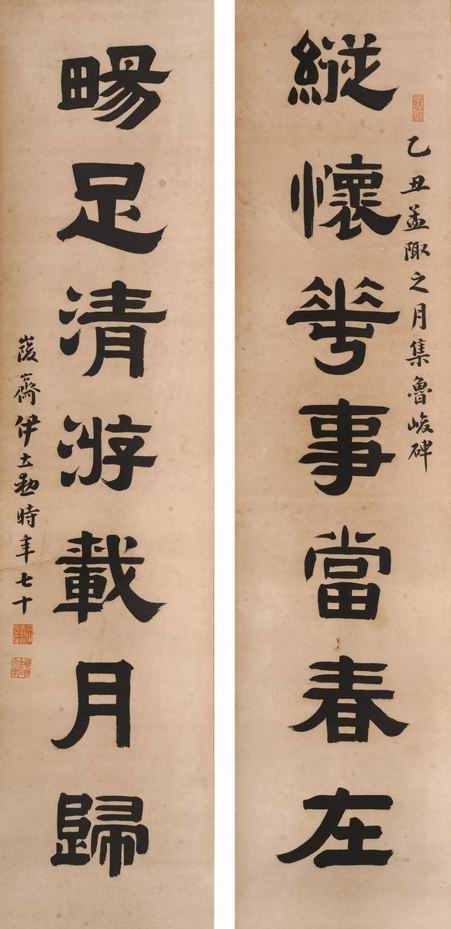 乙丑孟陬之月集魯峻碑
縱懷華事當春左
畼足清游載月歸
峻齋伊立勳時年七十